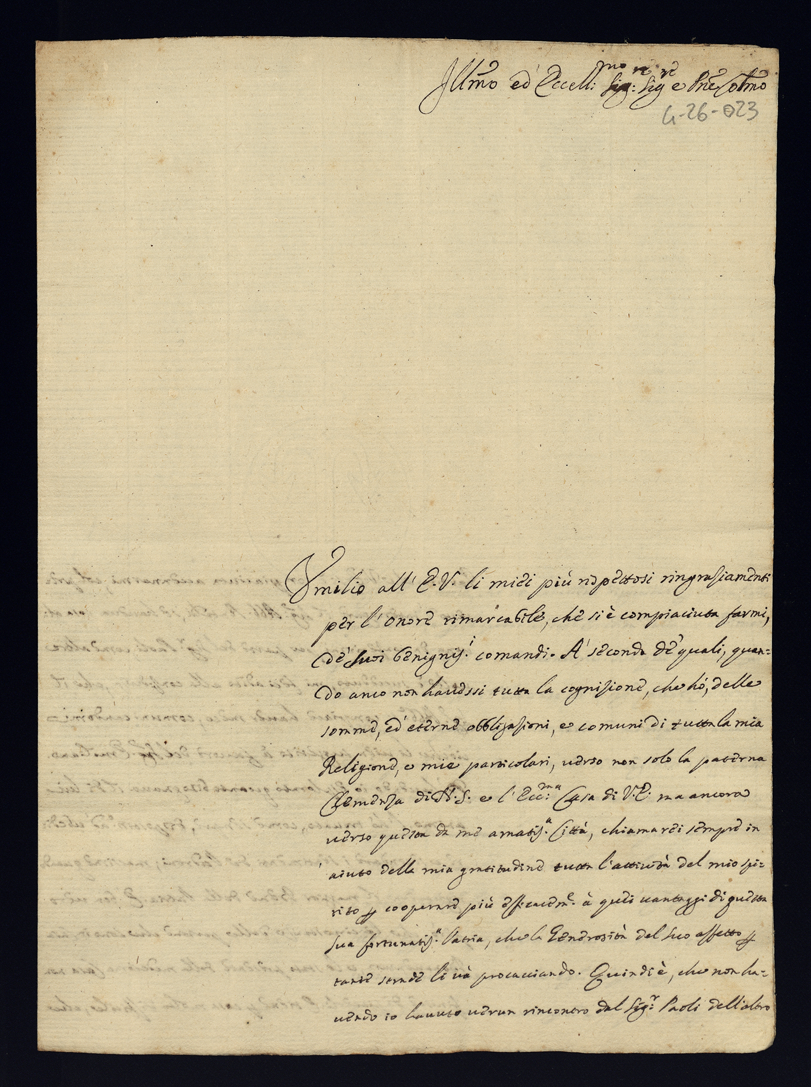 Illmo ed' Eccell:mo Sig:re Sig:re e Pne Colmo
4-26-023
Vmilio all' E.V. li miei più rispettosi ringrasiamenti
per l'onore rimarcabile, che si è compiaciuta farmi,
de' suoi benignis:i comandi. A' seconda de' quali, quan-
do anco non havessi tutta la cognisione, che hò, delle
somme, ed' eterne obbligasioni, e comuni di tutta la mia
Religione, e mie particolari, verso non solo la paterna
Clemenza di N.S. e l'Ecc:ma Casa di V.E: ma ancora
verso questa da me amatis:a Città, chiamarei sempre in
aiuto della mia gratitudine tutta l'attività del mio spi-
rito p cooperare più efficacem:e à quei vantaggi di questa
sua fortunatis:a Patria, che la Generosità del suo affetto p
tante strade li và procacciando. Quindi è, che non ha-
vendo io havuto verun rincontro dal Sig:r Paoli dell'altro